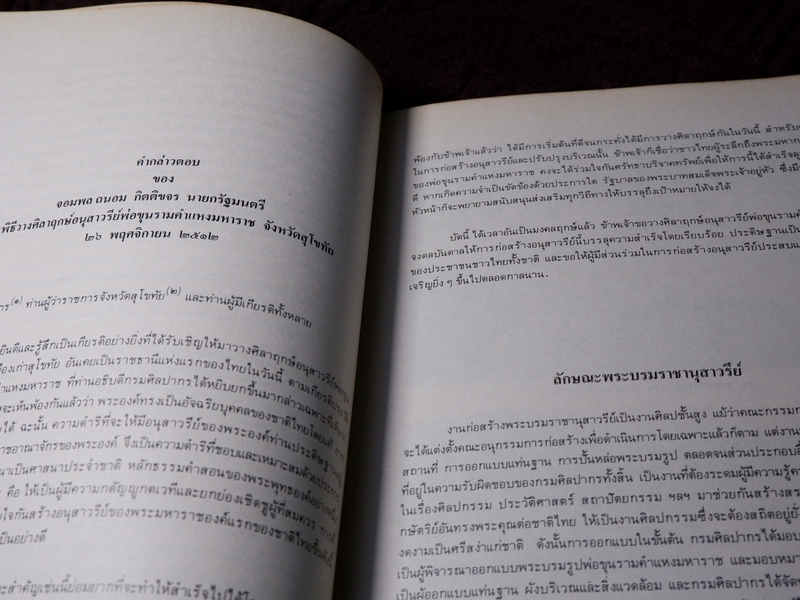 คำกล่าวตอบ
ของ
จอมพล ถนอม กิตติขจร นายกรัฐมนตรี
พิธีวางศิลาฤกษ์อนุสาวรีย์พ่อขุนรามคำแหงมหาราช จังหวัดสุโขทัย
๒๖ พฤศจิกายน ๒๕๑๒
(๑) ท่านผู้ว่าราชการจังหวัดสุโขทัย(๒) และท่านผู้มีเกียรติทั้งหลาย
ยินดีและรู้สึกเป็นเกียรติอย่างยิ่งที่ได้รับเชิญให้มาวางศิลาฤกษ์อนุสาวรีย์พ่อขุน
เมืองเก่าสุโขทัย อันเคยเป็นราชธานีแห่งแรกของไทยในวันนี้ ตามเกียรติประวัติ
คำแหงมหาราช ที่ท่านอธิบดีกรมศิลปากรได้หยิบยกขึ้นมากล่าวเฉพาะที่
จะเห็นพ้องกันแล้วว่า พระองค์ทรงเป็นอัจฉริยบุคคลของชาติไทยโดยแท้
ได้ ฉะนั้น ความดำริที่จะให้มีอนุสาวรีย์ของพระองค์ท่านประดิษฐาน
ราชอาณาจักรของพระองค์ จึงเป็นความดำริที่ชอบและเหมาะสมด้วย
เป็นศาสนาประจำชาติ หลักธรรมคำสอนของพระพุทธองค์
คือ ให้เป็นผู้มีความกตัญญูกตเวทีและยกย่องเชิดชูผู้ที่สมควร การที่
ใจกันสร้างอนุสาวรีย์ของพระมหาราชองค์แรกของชาติไทยขึ้น
เป็นอย่างดี
สำคัญเช่นนี้ย่อมยากที่จะทำให้สำเร็จไปได้
พ้องกับข้าพเจ้าแล้วว่า ได้มีการเริ่มต้นที่ดีจนกระทั่งได้มีการวางศิลาฤกษ์กันในวันนี้ สำหรับ
ในการก่อสร้างอนุสาวรีย์และปรับปรุงบริเวณนั้น ข้าพเจ้าก็เชื่อว่าชาวไทยผู้ระลึกถึงพระมหา
ของพ่อขุนรามคำแหงมหาราช คงจะได้ร่วมใจกันศรัทธาบริจาคทรัพย์เพื่อให้การนี้ได้สำเร็จ
ดี หากเกิดความจำเป็นขัดข้องด้วยประการใด รัฐบาลของพระบาทสมเด็จพระเจ้าอยู่หัว ซึ่งมี
หัวหน้าก็จะพยายามสนับสนุนส่งเสริมทุกวิถีทางให้บรรลุถึงเป้าหมายให้จงได้
บัดนี้ ได้เวลาอันเป็นมงคลฤกษ์แล้ว ข้าพเจ้าขอวางศิลาฤกษ์อนุสาวรีย์พ่อขุนราม
จงดลบันดาลให้การก่อสร้างอนุสาวรีย์นี้บรรลุความสำเร็จโดยเรียบร้อย ประดิษฐานเป็น
ของประชาชนชาวไทยทั้งชาติ และขอให้ผู้มีส่วนร่วมในการก่อสร้างอนุสาวรีย์ประสบ
เจริญยิ่ง ๆ ขึ้นไปตลอดกาลนาน.
ลักษณะพระบรมราชานุสาวรีย์
งานก่อสร้างพระบรมราชานุสาวรีย์เป็นงานศิลปชั้นสูง แม้ว่าคณะกรรมการ
จะได้แต่งตั้งคณะอนุกรรมการก่อสร้างเพื่อดำเนินการโดยเฉพาะแล้วก็ตาม แต่งาน
สถานที่ การออกแบบแท่นฐาน การปั้นหล่อพระบรมรูป ตลอดจนส่วนประกอบ
ที่อยู่ในความรับผิดชอบของกรมศิลปากรทั้งสิ้น เป็นงานที่ต้องระดมผู้มีความรู้
ในเรื่องศิลปกรรม ประวัติศาสตร์ สถาปัตยกรรม ฯลฯ มาช่วยกันสร้าง
กษัตริย์อันทรงพระคุณต่อชาติไทย ให้เป็นงานศิลปกรรมซึ่งจะต้องสถิตอยู่
งดงามเป็นศรีสง่าแก่ชาติ ดังนั้นการออกแบบในขั้นต้น กรมศิลปากรได้มอบ
เป็นผู้พิจารณาออกแบบพระบรมรูปพ่อขุนรามคำแหงมหาราช และมอบหมาย
เป็นผู้ออกแบบแท่นฐาน ผังบริเวณและสิ่งแวดล้อม และกรมศิลปากรได้จัด